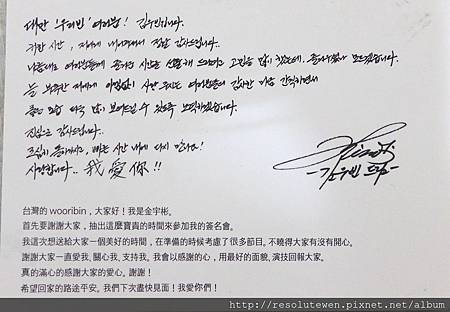 대만 '우리빈' 여러분! 김우빈입니다.
귀한 시간, 저에게 내어주셔서 정말 감사드립니다.
나름대로 여러분들께 즐거운 시간을 선물해 드리려고 고민을 많이 했었는데, 즐거우셨나 모르겠습니다.
늘 부족한 저에게 아낌없이 사랑 주시는 여러분들께 감사한 마음 간직하면서
좋은 모습 더욱 많이 보여드릴 수 있도록 노력하겠습니다.
진심으로 감사드립니다.
조심히 돌아가시고, 빠른 시간 내에 다시 만나요!
사랑합니다.. 我愛你!!
-김우빈 드림-
台灣的 wooribin，大家好！我是金宇彬。
首先要謝謝大家，抽出這麼寶貴的時間來參加我的簽名會。
我這次想送給大家一個美好的時間，在準備的時候考慮了很多節目。不曉得大家有沒有開心。
謝謝大家一直愛我、關心我、支持我。我會以感謝的心，用最好的面貌、演技回報大家。
真的滿心的感謝大家的愛心。謝謝！
希望回家的路途平安。我們下次盡快見面！我愛你們！
http://resolutewen.pixnet.net/album